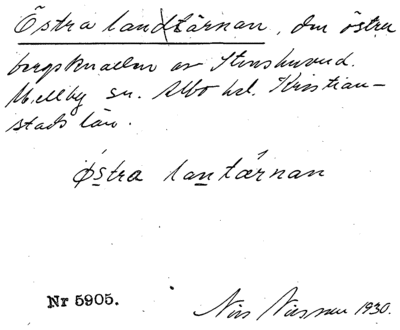 Östra landtärnan, den östra
bergsknallen av Stenshuvud.
Mellby sn. Albo hd. Kristian-
stads län.
Østra lantærnan
Nr 5905.
Nils Nilsson 1930.